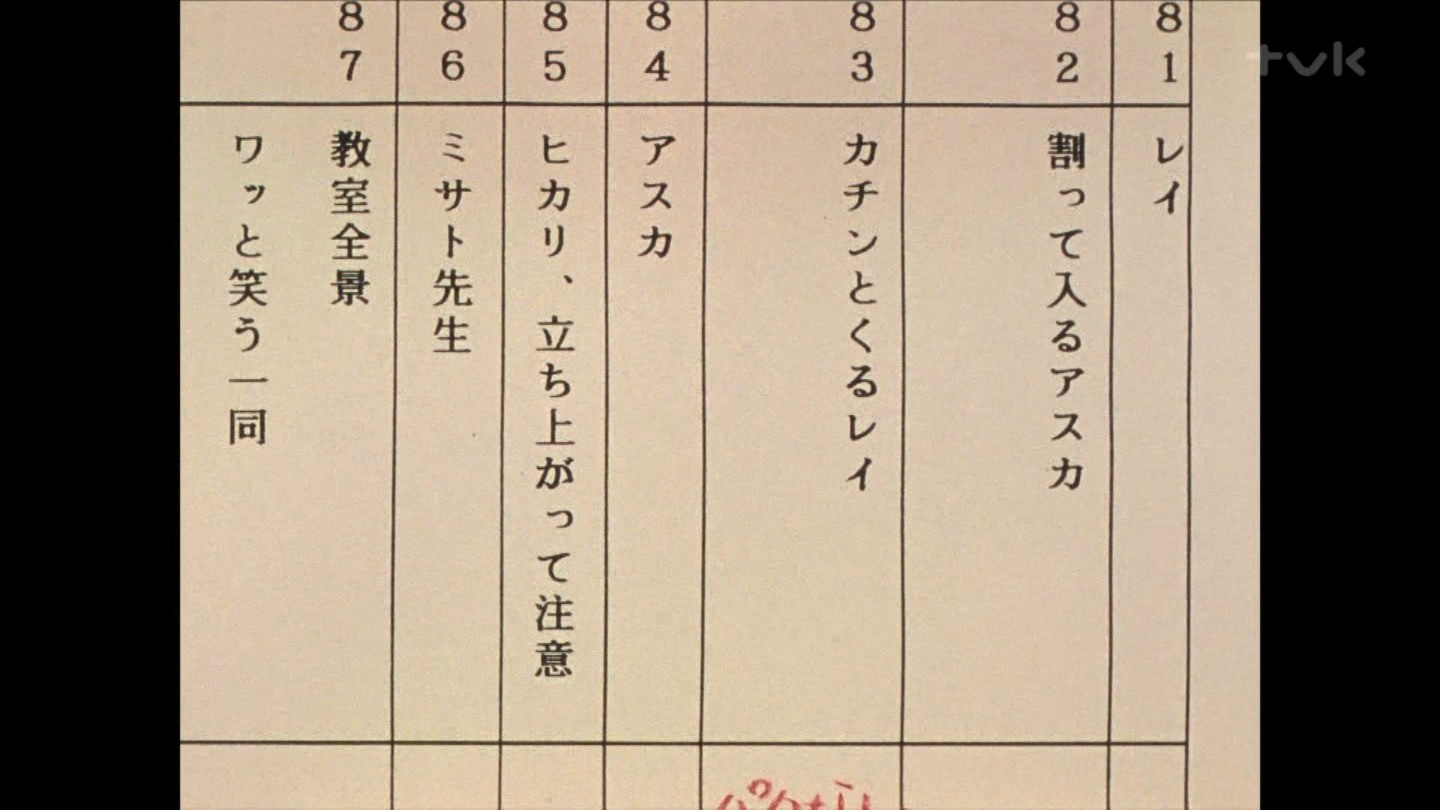 81
レイ
82
割って入るアスカ
83
カチンとくるレイ
パクなし
84
アスカ
85
ヒカリ、立ち上がって注意
86
ミサト先生
87
教室全景
ワッと笑う一同
tvk